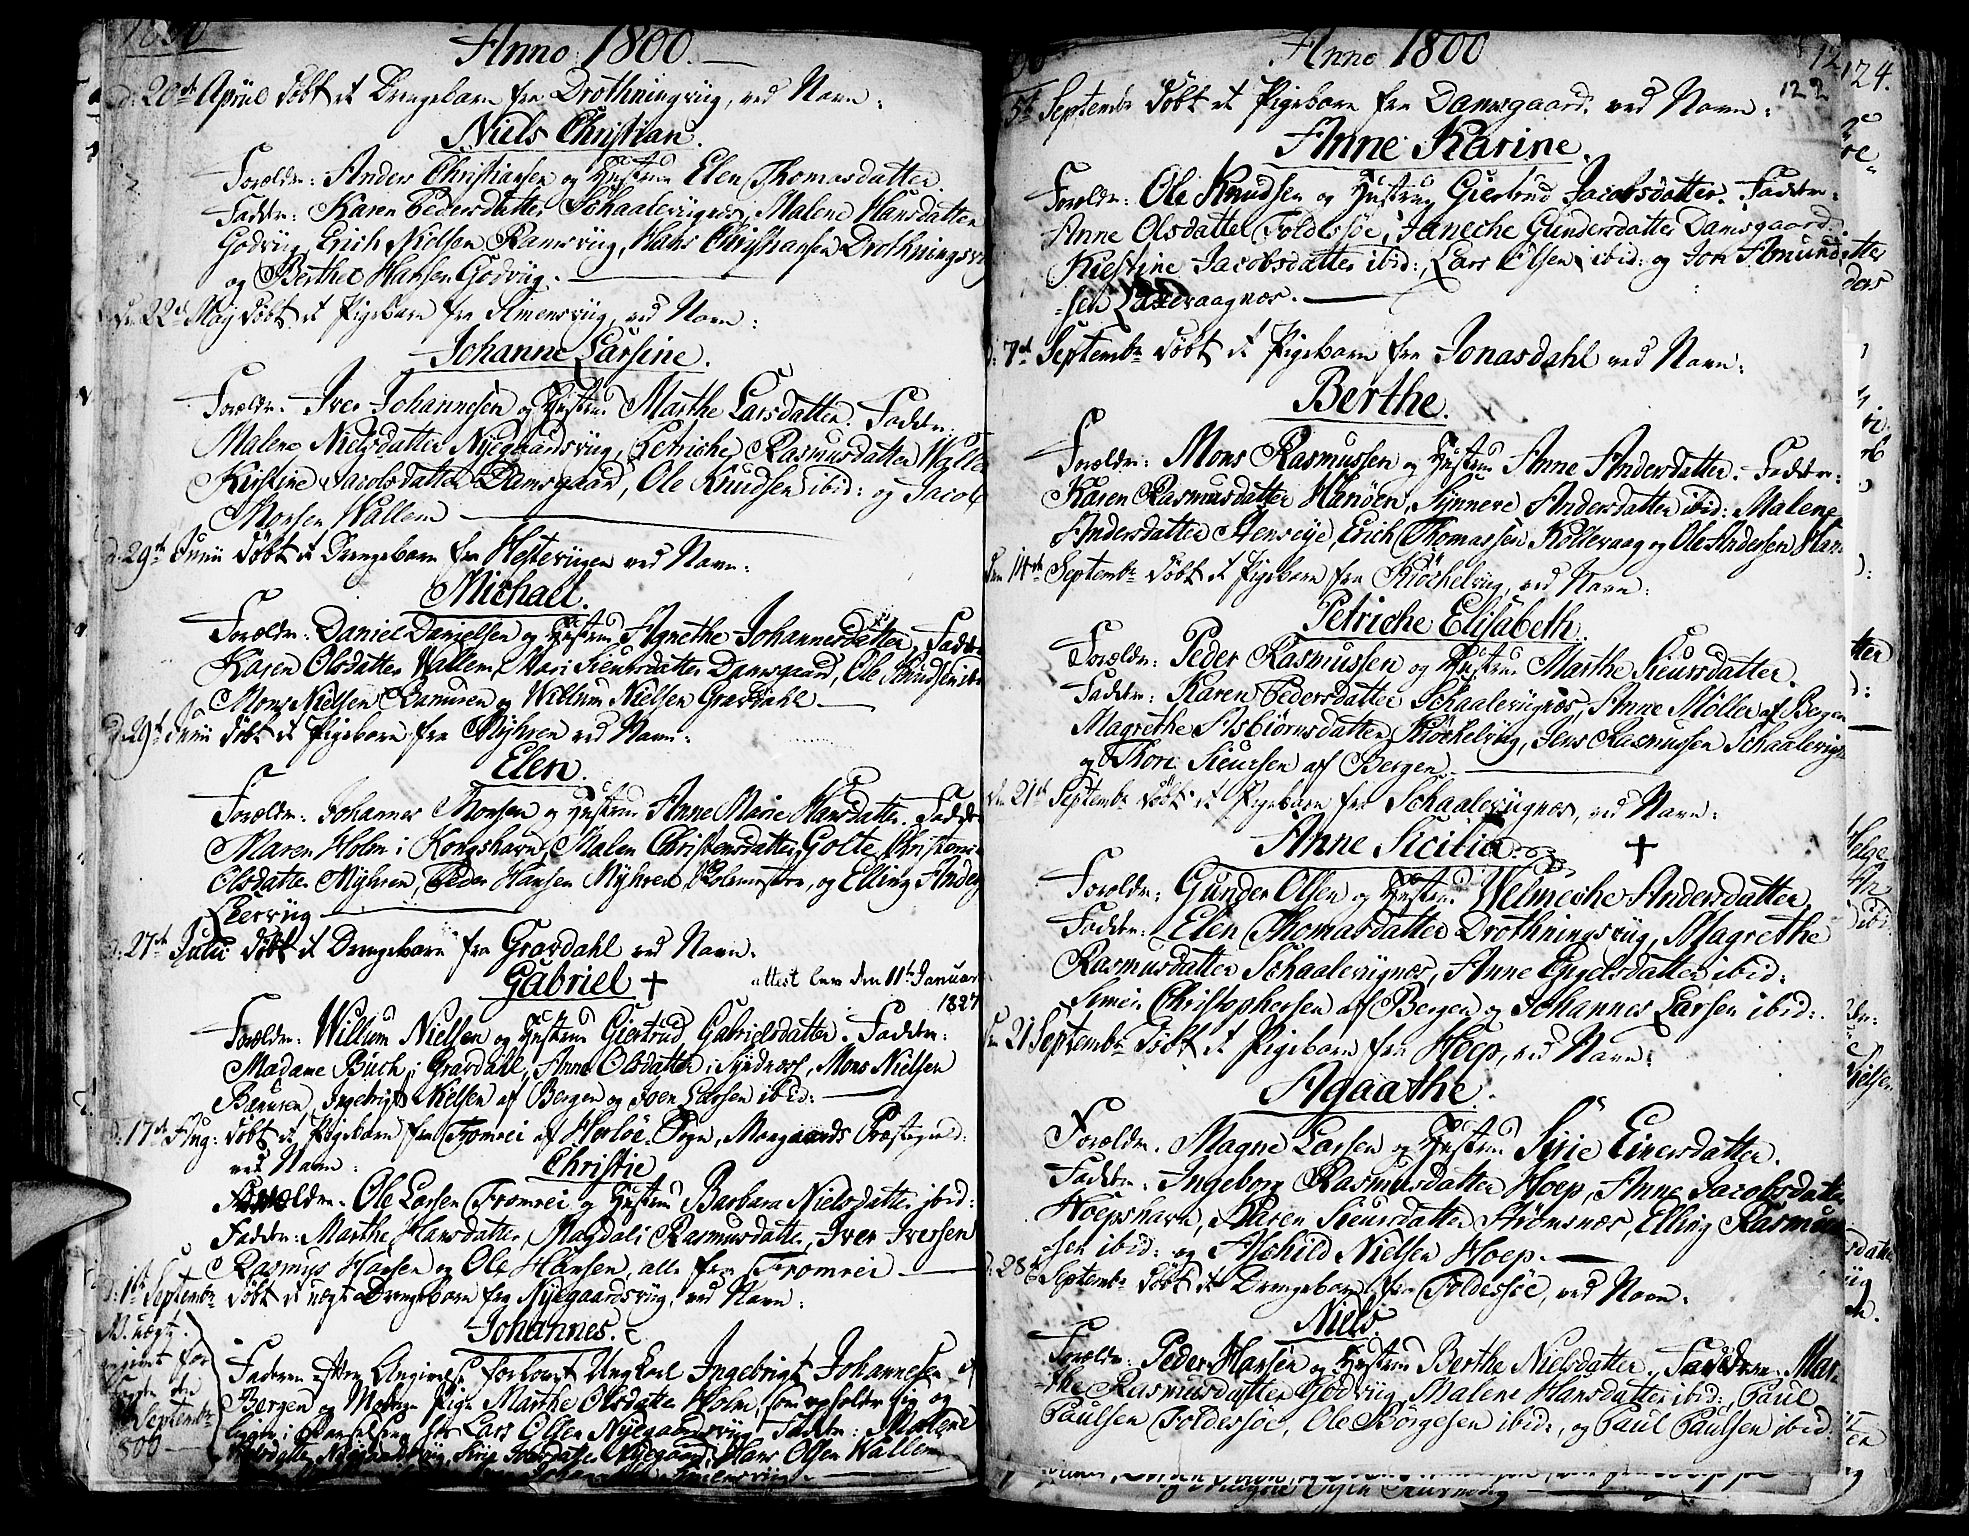 Anno 1800.
d: 20de Apriil døbt et Drengebarn fra Drothningviig, ved Navn:
Niels Christian.
Forældre: Anders Christiansen og Hustrue Elen Thomasdatter.
Faddere: Karen Pedersdatter Schaaleviignes, Malene Hansdatter
Godviig, Erich Nielsen Ramsviig, Hans Christiansen Drothningsvi
og Berthel Hansen Godviig.
d: 22de Maj døbt et Pigebarn fra Simensviig, ved Navn:
Johanne Larsine.
Forældre: Iver Johannesen og Hustrue Marthe Larsdatter. Faddere:
Malene Nielsdatter Nyegaardsviig, Petriche Rasmusdatter Walle
Kirstine Jacobsdatter Damsgaard, Ole Knudsen ibid: og Jacob
Monsen Wallem
d: 29de Junii døbt et Drengebarn fra Hesteviigen ved Navn:
Michael.
Forældre: Daniel Danielsen og Hustrue Agnethe Johannesdatter, Fadde
Karen Olsdatter Wallem, Mari Siursdatter Damsgaard, Ole Knudsen ibi
Mons Nielsen og Willum Nielsen Gravdahl
d: 29de Junii døbt et Pigebarn fra Myhren ved Navn:
Elen.
Forældre: Johannes Monsen og Hustrue Anne Marie Hansdatter. Fadde
Maren Holm i Kongshavn, Malen Christensdatter Golte, Christense
Olsdatter Myhren, Peder Hansen Myhren Skolemester, og Elling Anders
d: 27de Julii døbt et Drengebarn fra Gravdahl ved Navn:
Gabriel +
attest lev den 11te Januar
1827
Forældre: Willum Nielsen og Hustrue Giertrud Gabrielsdatter. Faddere:
Madame Buch i Gravdahl, Anne Olsdatter i Syndnes, Mons Nielsen
Ingebrigt Nielsen af Bergen og Joen Larsen ibid:
d: 17de Aug: døbt et Pigebarn fra Fromrei af Herløe Sogn, Mangaards Præstegield:
ved Navn:
Christie
Forældre. Ole Larsen Fromrei og Hustrue Barbara Nielsdatter ibid:
Faddere: Marthe Hansdatter, Magdali Rasmusdatter, Iver Iversen
Rasmus Hansen og Ole Hansen, alle fra Fromrei
d: 1ste Septembr døbt et uægte Drengebarn fra Nyegaardsviig, ved Navn:
Johannes.
angivet for
den
Septembr
800
Faderen efter Angivelse forlovet Ungkarl Ingebrigt Johannesen af
Bergen og Moder Pige Marthe Olsdatter Holm, som opholder sig og
ligger i Barselseng hos Lars Olsen Nyegaardsviig. Faddere: Malene
Nielsdatter Nyegaardsviig, Hans Olsen Wallem
Simensviig
Anno 1800
122
124.
5te Septembr døbt et Pigebarn fra Damsgaard, ved Navn:
Anne Karine.
Forældre: Ole Knudsen og Hustrue Giertrud Jacobsdatter. Faddere:
Anne Olsdatter Toldessøe, Janeche Gundersdatter Damsgaard,
Kiestine Jacobsdatter ibid:, Lars Olsen ibid: og Jon Amund
-sen Laxevaagnæs.
d: 7de Septembr døbt et Pigebarn fra Jonasdahl ved Navn:
Berthe.
Forældre: Mons Rasmussen og Hustrue Anne Andersdatter. Faddere:
Karen Rasmusdatter Hanøen, Synneve Andersdatter ibid: Malene
Andersdatter Stensøye, Erich Thomassen Kollevaag og Ole Andersen Han
den 14de Septembr døbt et Pigebarn fra Kiøchelviig, ved Navn:
Petriche Elisabeth.
Forældre: Peder Rasmussen og Hustrue Marthe Siursdatter.
Faddere: Karen Pedersdatter Schaaleviignes, Anne Møller af Bergen
Magrethe Asbiørnsdatter Kiøchelviig, Jens Rasmussen Schaaleviign
og Thore Siursen af Bergen
den 21de Septembr døbt et Pigebarn fra Schaaleviignes, ved Navn:
Anne Sicilia. +
Forældre: Gunder Olsen og Hustrue Welmeche Andersdatter
Faddere: Elen Thomasdatter Drothningsviig, Magrethe
Rasmusdatter Schaaleviignes, Anne Engelsdatter ibid:
Simen Christophersen af Bergen og Johannes Larsen ibid:
den 21 Septembr døbt et Pigebarn fra Hoep, ved Navn:
Agaathe.
Forældre. Magne Larsen og Hustrue Sirie Einersdatter.
Faddere: Ingeborg Rasmusdatter Hoep, Anne Jacobsdatter
Hoepshavn, Karen Siursdatter Strømsnæs, Elling Rasmus
-sen ibid: og Aschild Nielsen Hoep.
d: 28de Septembr døbt et Drengebarn fra Toldessøe, ved Navn:
Niels.
Forældre: Peder Hansen og Hustrue Berthe Nielsdatter. Faddere: Mar-
-the Rasmusdatter Godviig, Malene Hansdatter ibid:, Paul
Paulsen Toldessøe, Ole Børgesen ibid:, og Paul Paulsen ibid.